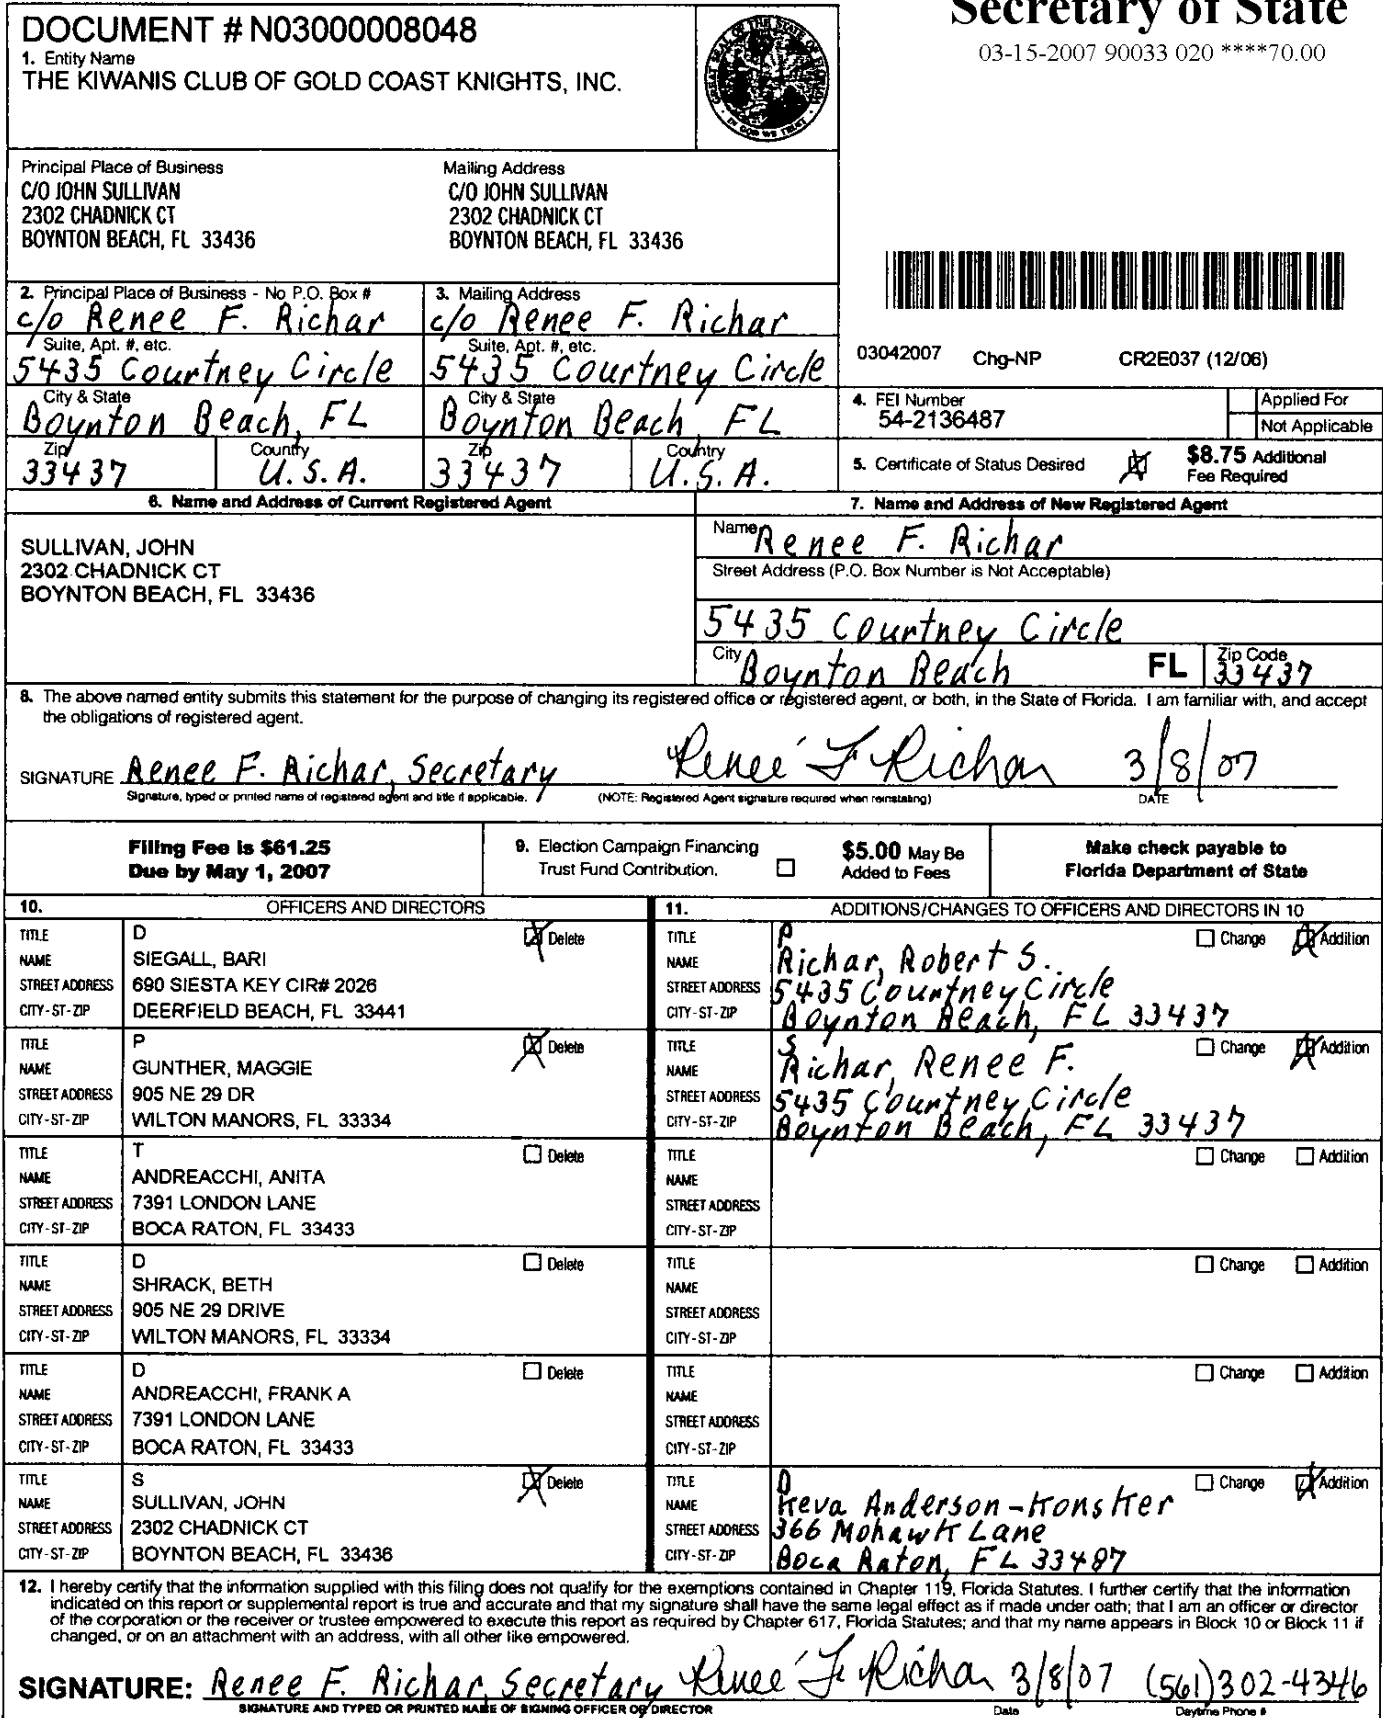 Secretary of State
03-15-2007 90033 020 ****70.00
DOCUMENT # N03000008048
1. Entity Name
THE KIWANIS CLUB OF GOLD COAST KNIGHTS, INC.
Principal Place of Business
C/O JOHN SULLIVAN
2302 CHADNICK CT
BOYNTON BEACH, FL 33436
Mailing Address
C/O JOHN SULLIVAN
2302 CHADNICK CT
BOYNTON BEACH, FL 33436
2. Principal Place of Business - No P.O. Box #
c/o Renee F. Richar
Suite, Apt. #, etc.
5435 Courtney Circle
City & State
Boynton Beach, FL
Zip
33437
Country
U.S.A.
3. Mailing Address
c/o Renee F. Richar
Suite, Apt. #, etc.
5435 Courtney Circle
City & State
Boynton Beach, FL
Zip
33437
Country
U.S.A.
03042007 Chg-NP CR2E037 (12/06)
4. FEI Number
54-2136487
Applied For
Not Applicable
5. Certificate of Status Desired
$8.75 Additional
Fee Required
6. Name and Address of Current Registered Agent
SULLIVAN, JOHN
2302 CHADNICK CT
BOYNTON BEACH, FL 33436
7. Name and Address of New Registered Agent
Name Renee F. Richar
Street Address (P.O. Box Number is Not Acceptable)
5435 Courtney Circle
City Boynton Beach FL Zip Code 33437
8. The above named entity submits this statement for the purpose of changing its registered office or registered agent, or both, in the State of Florida. I am familiar with, and accept
the obligations of registered agent.
SIGNATURE Renee F. Richar, Secretary Reneé F Richar 3/8/07
Signature, typed or printed name of registered agent and title if applicable. (NOTE: Registered Agent signature required when reinstating) DATE
Filing Fee is $61.25
Due by May 1, 2007
9. Election Campaign Financing
Trust Fund Contribution.
$5.00 May Be
Added to Fees
Make check payable to
Florida Department of State
10. OFFICERS AND DIRECTORS
TITLE D Delete
NAME SIEGALL, BARI
STREET ADDRESS 690 SIESTA KEY CIR# 2026
CITY-ST-ZIP DEERFIELD BEACH, FL 33441
TITLE P Delete
NAME GUNTHER, MAGGIE
STREET ADDRESS 905 NE 29 DR
CITY-ST-ZIP WILTON MANORS, FL 33334
TITLE T Delete
NAME ANDREACCHI, ANITA
STREET ADDRESS 7391 LONDON LANE
CITY-ST-ZIP BOCA RATON, FL 33433
TITLE D Delete
NAME SHRACK, BETH
STREET ADDRESS 905 NE 29 DRIVE
CITY-ST-ZIP WILTON MANORS, FL 33334
TITLE D Delete
NAME ANDREACCHI, FRANK A
STREET ADDRESS 7391 LONDON LANE
CITY-ST-ZIP BOCA RATON, FL 33433
TITLE S Delete
NAME SULLIVAN, JOHN
STREET ADDRESS 2302 CHADNICK CT
CITY-ST-ZIP BOYNTON BEACH, FL 33436
11. ADDITIONS/CHANGES TO OFFICERS AND DIRECTORS IN 10
TITLE P Change Addition
NAME Richar, Robert S.
STREET ADDRESS 5435 Courtney Circle
CITY-ST-ZIP Boynton Beach, FL 33437
TITLE S Change Addition
NAME Richar, Renee F.
STREET ADDRESS 5435 Courtney Circle
CITY-ST-ZIP Boynton Beach, FL 33437
TITLE Change Addition
NAME
STREET ADDRESS
CITY-ST-ZIP
TITLE Change Addition
NAME
STREET ADDRESS
CITY-ST-ZIP
TITLE Change Addition
NAME
STREET ADDRESS
CITY-ST-ZIP
TITLE D Change Addition
NAME Keva Anderson-Konsker
STREET ADDRESS 366 Mohawk Lane
CITY-ST-ZIP Boca Raton, FL 33487
12. I hereby certify that the information supplied with this filing does not qualify for the exemptions contained in Chapter 119, Florida Statutes. I further certify that the information
indicated on this report or supplemental report is true and accurate and that my signature shall have the same legal effect as if made under oath; that I am an officer or director
of the corporation or the receiver or trustee empowered to execute this report as required by Chapter 617, Florida Statutes; and that my name appears in Block 10 or Block 11 if
changed, or on an attachment with an address, with all other like empowered.
SIGNATURE: Renee F. Richar, Secretary Reneé F. Richar 3/8/07 (561)302-4346
SIGNATURE AND TYPED OR PRINTED NAME OF SIGNING OFFICER OR DIRECTOR Date Daytime Phone #